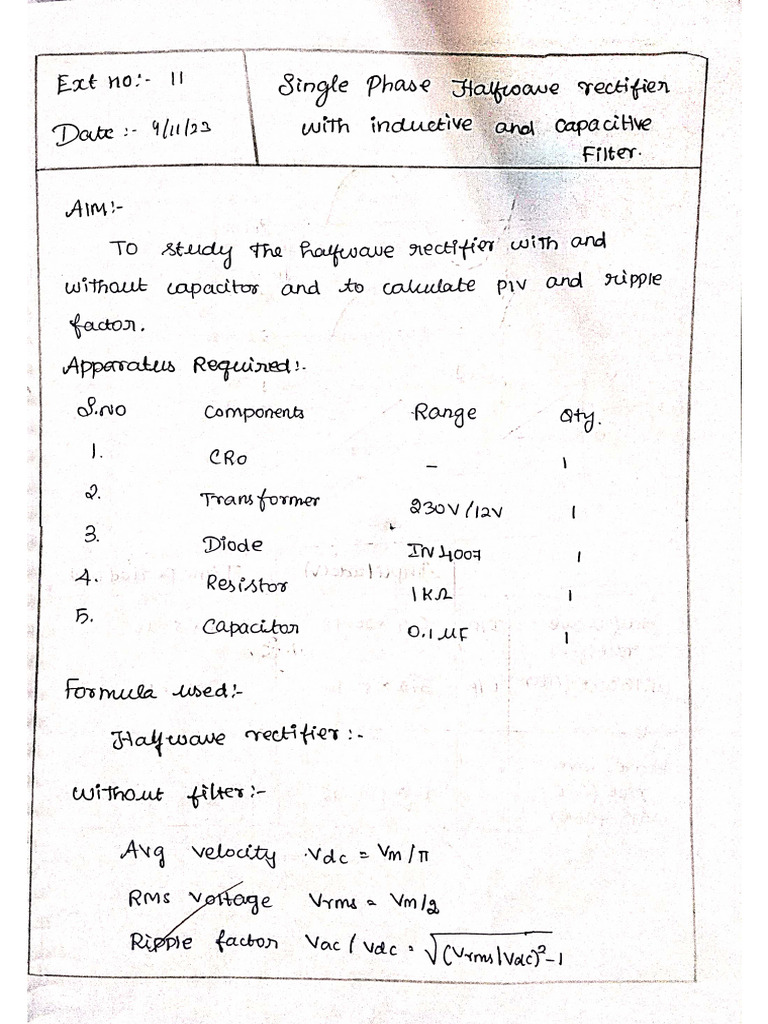 Ext no:- 11
Date :- 9/11/23
Single Phase Halfwave rectifier
with inductive and capacitive
Filter.
AIM:-
To study the halfwave rectifier with and
without capacitor and to calculate PIV and ripple
factor.
Apparatus Required:-
S.NO Components Range Qty.
1. CRO - 1
2. Transformer 230V/12V 1
3. Diode IN4007 1
4. Resistor 1KΩ 1
5. Capacitor 0.1 μF 1
Formula used:-
Halfwave rectifier:-
Without filter:-
Avg velocity Vdc = Vm/π
RMS Voltage Vrms = Vm/2
Ripple factor Vac/Vdc = √(Vrms/Vdc)²-1